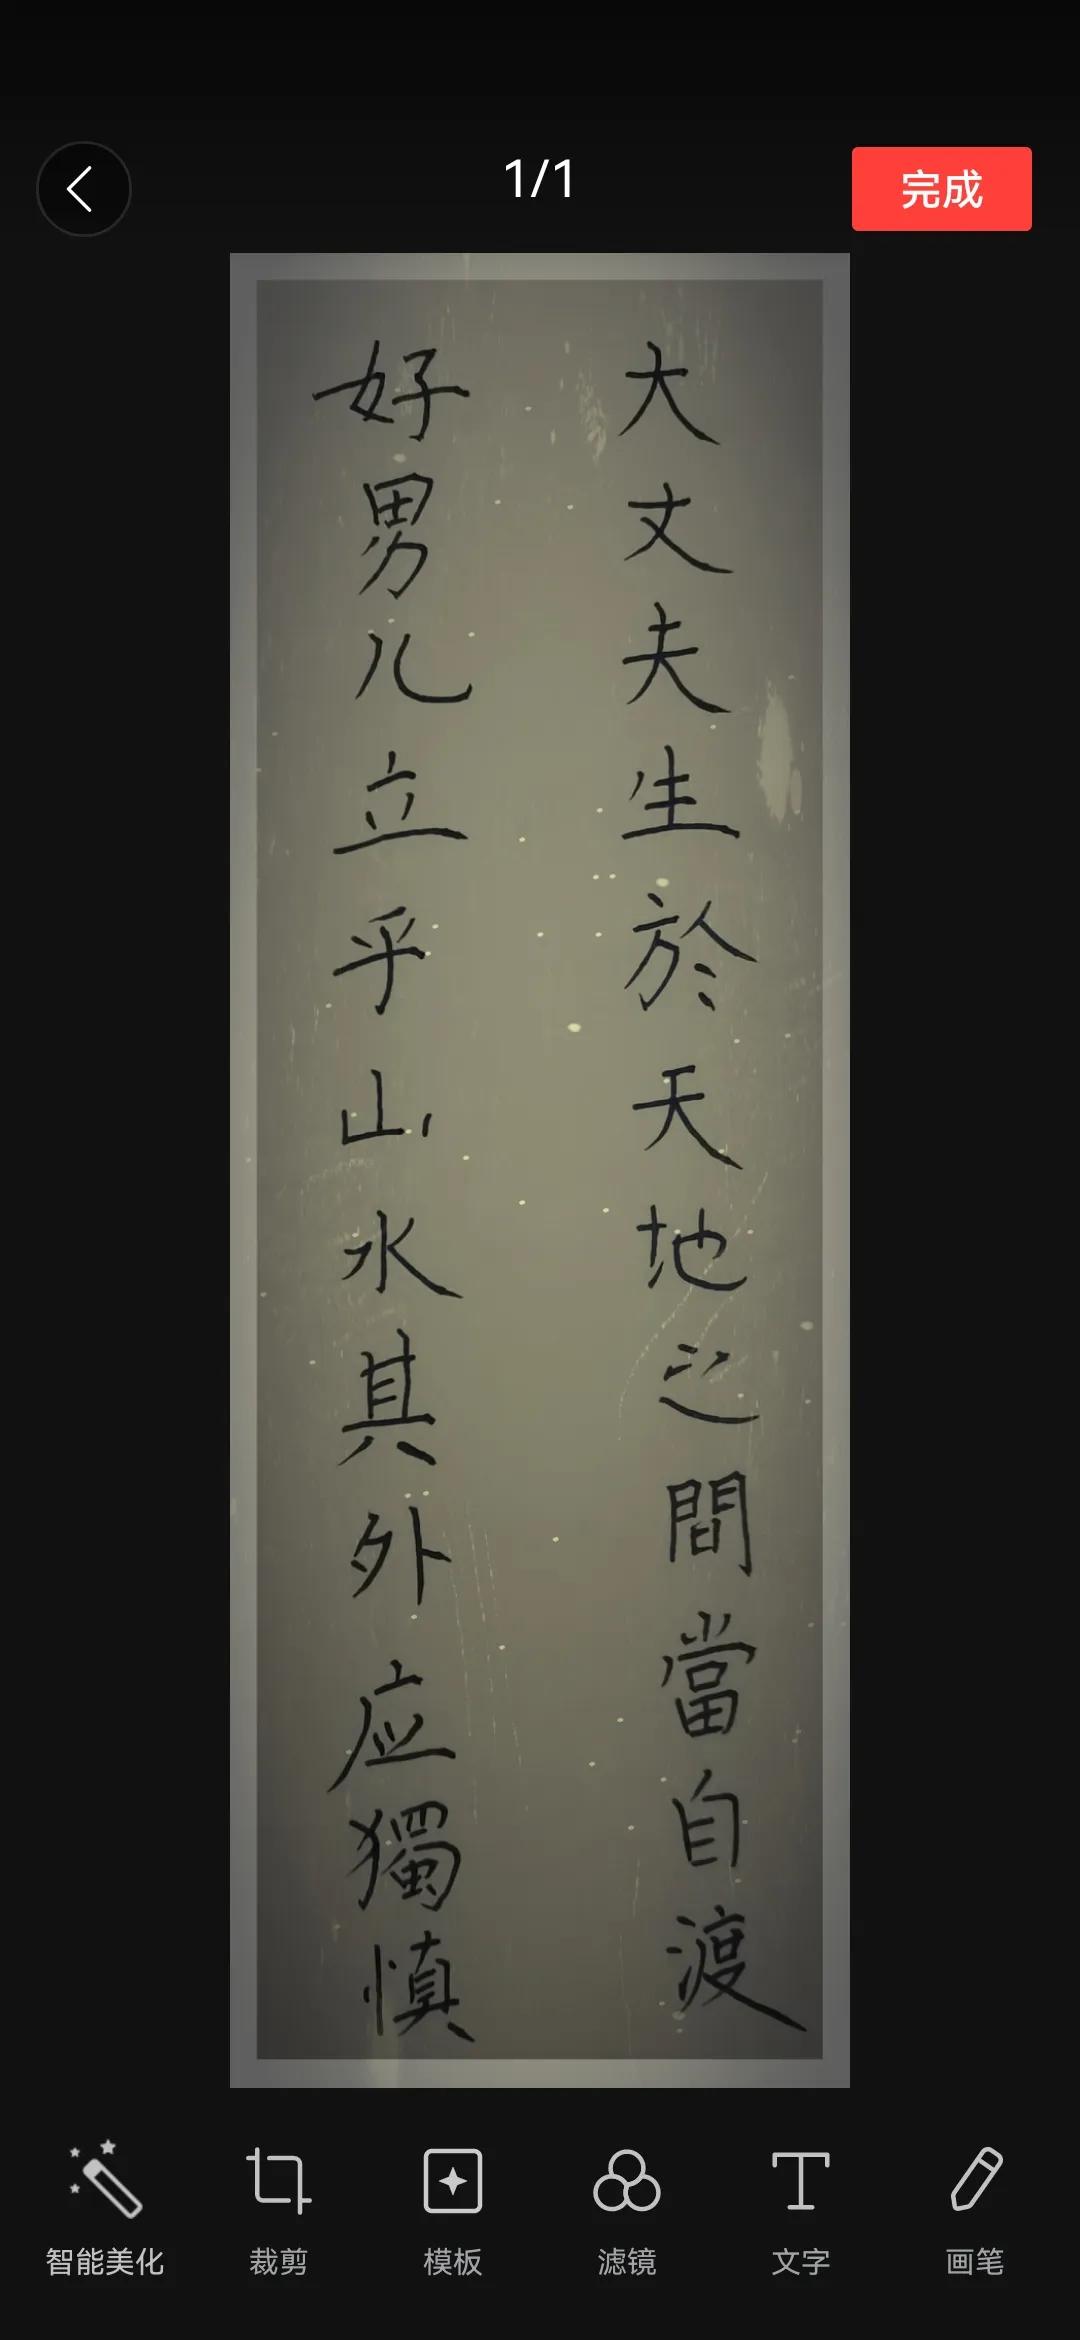 1/1
完成
大丈夫生於天地之間當自渡
好男儿立乎山水其外应獨慎
智能美化
裁剪
模板
滤镜
文字
画笔